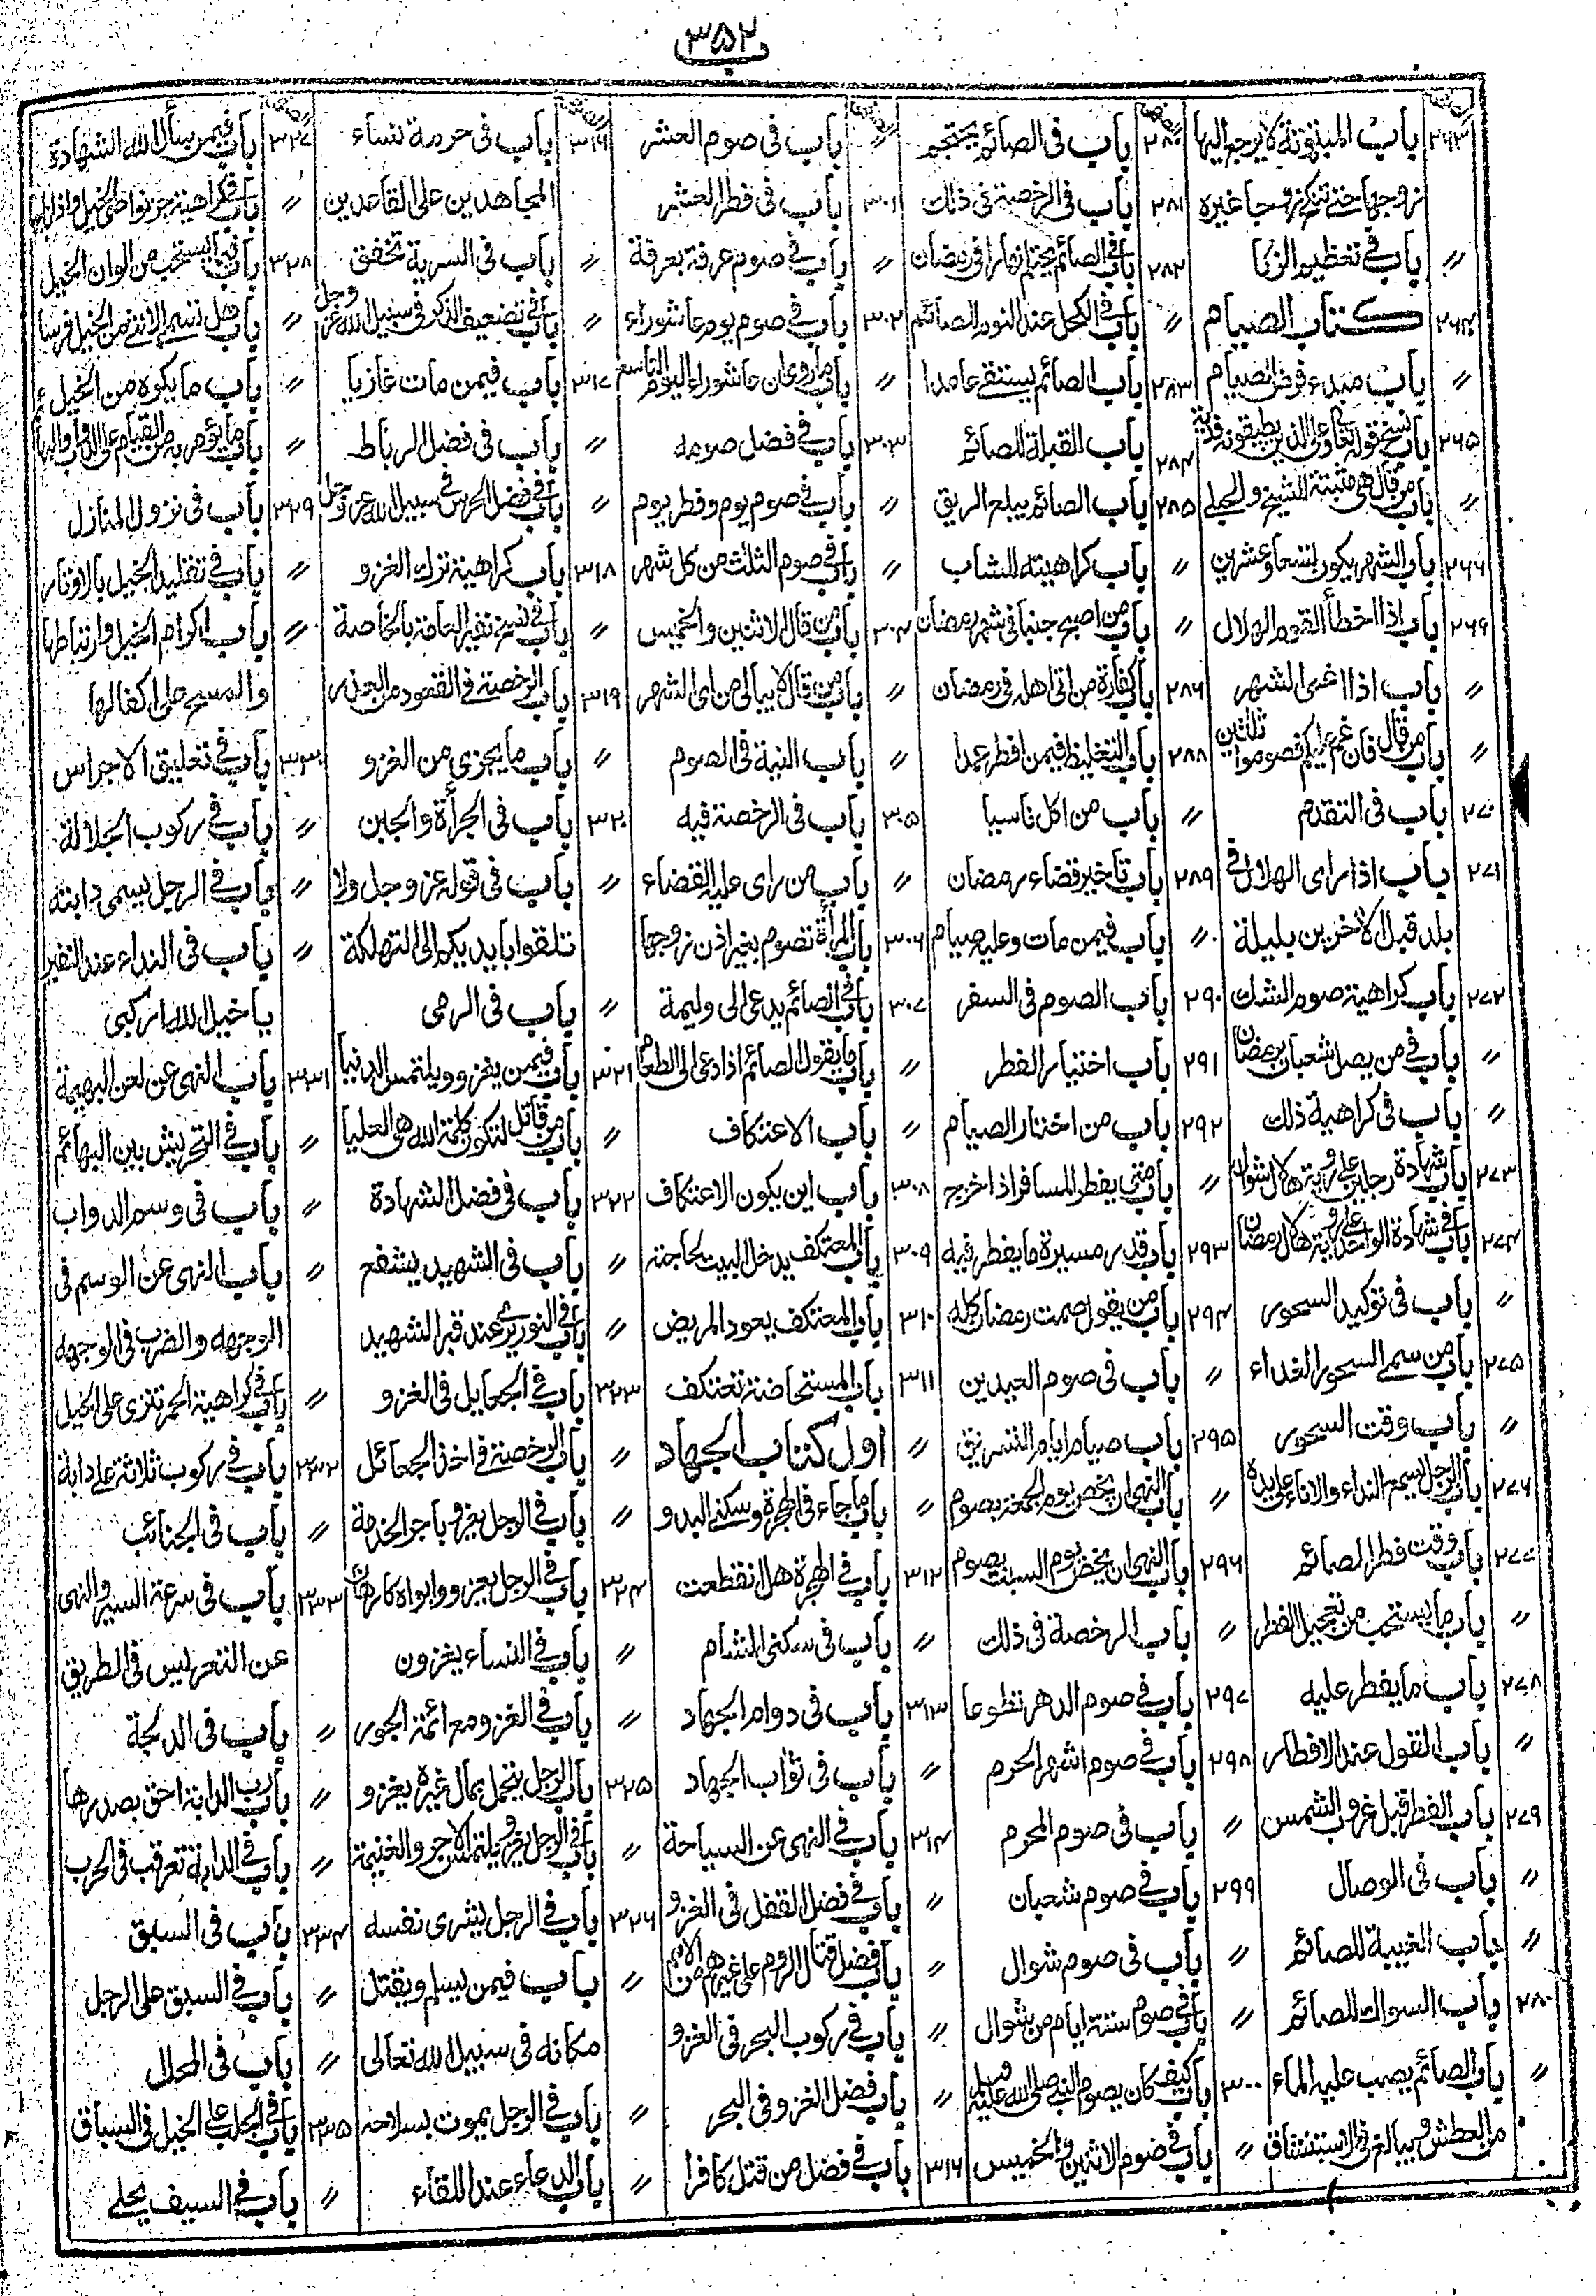 ٣٥٢
٢٦٣ باب المبتوتة لا يرجع اليها
زوجها حتى تنكح زوجا غيره
〃 باب في تعظيم الزنا
٢٦٤ كتاب الصيام
〃 باب مبدء فرض الصيام
٢٦٥ باب نسخ قوله تعالى وعلى الذين يطيقونه فدية
〃 باب من قال هي مثبتة للشيخ والحبلى
٢٦٦ باب الشهر يكون تسعا وعشرين
٢٦٩ باب اذا اخطأ القوم الهلال
〃 باب اذا اغمى الشهر
〃 باب من قال فان غم عليكم فصوموا ثلثين
٢٧٠ باب في التقدم
٢٧١ باب اذا راى الهلال في
بلد قبل الآخرين بليلة
٢٧٢ باب كراهية صوم الشك
〃 باب في من يصل شعبان برمضان
〃 باب في كراهية ذلك
٢٧٣ باب شهادة رجلين على روية هلال شوال
٢٧٤ باب في شهادة الواحد على روية هلال رمضان
〃 باب في توكيد السحور
٢٧٥ باب من سمى السحور الغداء
〃 باب وقت السحور
٢٧٦ باب الرجل يسمع النداء والاناء على يده
٢٧٧ باب وقت فطر الصائم
〃 باب ما يستحب من تعجيل الفطر
٢٧٨ باب ما يفطر عليه
〃 باب القول عند الافطار
٢٧٩ باب الفطر قبل غروب الشمس
〃 باب في الوصال
〃 باب الغيبة للصائم
٢٨٠ باب السواك للصائم
〃 باب الصائم يصب عليه الماء
من العطش ويبالغ في الاستنشاق
٢٨٠ باب في الصائم يحتجم
٢٨١ باب في الرخصة في ذلك
٢٨٢ باب في الصائم يحتلم نهارا في رمضان
〃 باب في الكحل عند النوم للصائم
٢٨٣ باب الصائم يستقئ عامدا
٢٨٤ باب القبلة للصائم
٢٨٥ باب الصائم يبلع الريق
〃 باب كراهيته للشاب
〃 باب من اصبح جنبا في شهر رمضان
٢٨٦ باب كفارة من اتى اهله في رمضان
٢٨٨ باب التغليظ فيمن افطر عمدا
〃 باب من اكل ناسيا
٢٨٩ باب تاخير قضاء رمضان
〃 باب فيمن مات وعليه صيام
٢٩٠ باب الصوم في السفر
٢٩١ باب اختيار الفطر
٢٩٢ باب من اختار الصيام
〃 باب متى يفطر المسافر اذا خرج
٢٩٣ باب قدر مسيرة ما يفطر فيه
٢٩٤ باب من يقول صمت رمضان كله
〃 باب في صوم العيدين
٢٩٥ باب صيام ايام التشريق
〃 باب النهي ان يخص يوم الجمعة بصوم
٢٩٦ باب النهي ان يخص يوم السبت بصوم
〃 باب الرخصة في ذلك
٢٩٧ باب في صوم الدهر تطوعا
٢٩٨ باب في صوم اشهر الحرم
〃 باب في صوم المحرم
٢٩٩ باب في صوم شعبان
〃 باب في صوم شوال
〃 باب في صوم ستة ايام من شوال
٣٠٠ باب كيف كان يصوم النبي صلى الله عليه وسلم
〃 باب في صوم الاثنين والخميس
〃 باب في صوم العشر
٣٠١ باب في فطر العشر
〃 باب في صوم عرفة بعرفة
٣٠٢ باب في صوم يوم عاشوراء
〃 باب ما روى ان عاشوراء اليوم التاسع
٣٠٣ باب في فضل صومه
〃 باب في صوم يوم وفطر يوم
〃 باب في صوم الثلث من كل شهر
٣٠٤ باب من قال الاثنين والخميس
〃 باب من قال لا يبالي من اي الشهر
〃 باب النية في الصوم
٣٠٥ باب في الرخصة فيه
〃 باب من راى عليه القضاء
٣٠٦ باب المرأة تصوم بغير اذن زوجها
٣٠٧ باب في الصائم يدعى الى وليمة
〃 باب ما يقول الصائم اذا دعى الى الطعام
〃 باب الاعتكاف
٣٠٨ باب اين يكون الاعتكاف
٣٠٩ باب المعتكف يدخل البيت لحاجته
٣١٠ باب المعتكف يعود المريض
٣١١ باب المستحاضة تعتكف
〃 اول كتاب الجهاد
〃 باب ما جاء في الهجرة وسكنى البدو
٣١٢ باب في الهجرة هل انقطعت
〃 باب في سكنى الشام
٣١٣ باب في دوام الجهاد
〃 باب في ثواب الجهاد
٣١٤ باب في النهي عن السياحة
〃 باب في فضل القفل في الغزو
〃 باب فضل قتال الروم على غيرهم من الامم
〃 باب في ركوب البحر في الغزو
〃 باب فضل الغزو في البحر
٣١٦ باب في فضل من قتل كافرا
٣١٦ باب في حرمة نساء
المجاهدين على القاعدين
〃 باب في السرية تخفق
〃 باب في تضعيف الذكر في سبيل الله عز وجل
٣١٧ باب فيمن مات غازيا
〃 باب في فضل الرباط
〃 باب في فضل الحرس في سبيل الله عز وجل
٣١٨ باب كراهية ترك الغزو
〃 باب في نسخ نفير العامة بالخاصة
٣١٩ باب الرخصة في القعود من العذر
〃 باب ما يجزى من الغزو
٣٢٠ باب في الجرأة والجبن
〃 باب في قوله عز وجل ولا
تلقوا بايديكم الى التهلكة
〃 باب في الرمي
٣٢١ باب فيمن يغزو ويلتمس الدنيا
〃 باب من قاتل لتكون كلمة الله هي العليا
٣٢٢ باب في فضل الشهادة
〃 باب في الشهيد يشفع
〃 باب في النور يرى عند قبر الشهيد
٣٢٣ باب في الجعايل في الغزو
〃 باب الرخصة في اخذ الجعائل
〃 باب في الرجل يغزو باجر الخدمة
٣٢٤ باب في الرجل يغزو وابواه كارهان
〃 باب في النساء يغزون
〃 باب في الغزو مع ائمة الجور
٣٢٥ باب الرجل يتحمل بمال غيره يغزو
〃 باب في الرجل يغزو يلتمس الاجر والغنيمة
٣٢٦ باب في الرجل يشرى نفسه
〃 باب فيمن يسلم ويقتل
مكانه في سبيل الله تعالى
〃 باب في الرجل يموت بسلاحه
〃 باب الدعاء عند اللقاء
٣٢٧ باب فيمن سأل الله الشهادة
〃 باب في كراهية جز نواصي الخيل واذنابها
٣٢٨ باب فيما يستحب من الوان الخيل
〃 باب هل تسمى الانثى من الخيل فرسا
〃 باب ما يكره من الخيل
〃 باب ما يؤمر به من القيام على الدواب والبهائم
٣٢٩ باب في نزول المنازل
〃 باب في تقليد الخيل بالاوتار
〃 باب اكرام الخيل وارتباطها
والمسح على اكفالها
٣٣٠ باب في تعليق الاجراس
〃 باب في ركوب الجلالة
〃 باب في الرجل يسمى دابته
〃 باب في النداء عند النفير
يا خيل الله اركبي
٣٣١ باب النهي عن لعن البهيمة
〃 باب في التحريش بين البهائم
〃 باب في وسم الدواب
〃 باب النهي عن الوسم في
الوجه والضرب في الوجه
〃 باب في كراهية الحمر تنزى على الخيل
٣٣٢ باب في ركوب ثلاثة على دابة
〃 باب في الجنائب
٣٣٣ باب في سرعة السير والنهي
عن التعريس في الطريق
〃 باب في الدلجة
〃 باب رب الدابة احق بصدرها
〃 باب في الدابة تعرقب في الحرب
٣٣٤ باب في السبق
〃 باب في السبق على الرجل
〃 باب في المحلل
٣٣٥ باب في الجلب على الخيل في السباق
〃 باب في السيف يحلى